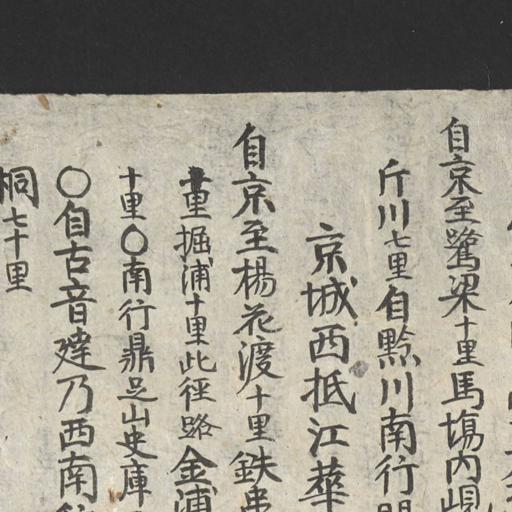 自京至鷺梁十里馬塲內峴
斤川七里自黔川南行
京城西抵江華
自京至楊花渡十里鉄串
里掘浦十里此徑路金浦
十里〇南行鼎足山史庫
〇自古音建乃西南
桐七十里